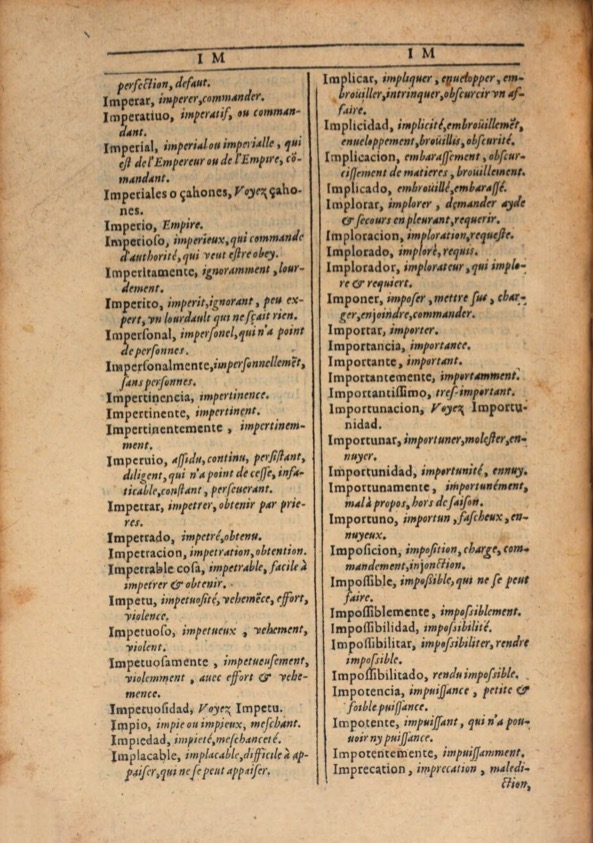 I M
perfection, defaut.
Imperar, imperer, commander.
Imperatiuo, imperatif, ou comman-
dant.
Imperial, imperial ou imperialle, qui
est de l'Empereur ou de l'Empire, cõ-
mandant.
Imperiales o çahones, Voyez çaho-
nes.
Imperio, Empire.
Imperioſo, imperieux, qui commande
d'authorité, qui veut eſtre obey.
Imperitamente, ignoramment, lour-
dement.
Imperito, imperit, ignorant, peu ex-
pert, vn lourdault qui ne ſçait rien.
Imperſonal, imperſonel, qui n'a point
de perſonnes.
Imperſonalmente, imperſonnellemẽt,
ſans perſonnes.
Impertinencia, impertinence.
Impertinente, impertinent.
Impertinentemente, impertinem-
ment.
Imperuio, aſſidu, continu, perſiſtant,
diligent, qui n'a point de ceſſe, infa-
ticable, conſtant, perſeuerant.
Impetrar, impetrer, obtenir par prie-
res.
Impetrado, impetré, obtenu.
Impetracion, impetration, obtention.
Impetrable coſa, impetrable, facile à
impetrer & obtenir.
Impetu, impetuoſité, vehemẽce, effort,
violence.
Impetuoſo, impetueux, vehement,
violent.
Impetuoſamente, impetueuſement,
violemment, auec effort & vehe-
mence.
Impetuoſidad, Voyez Impetu.
Impio, impie ou impieux, meſchant.
Impiedad, impieté, meſchanceté.
Implacable, implacable, difficile à ap-
paiſer, qui ne ſe peut appaiſer.
I M
Implicar, impliquer, enuelopper, em-
broüiller, intrinquer, obſcurcir vn af-
faire.
Implicidad, implicité, embroüillemẽt,
enueloppement, broüillis, obſcurité.
Implicacion, embaraſſement, obſcur-
ciſſement de matieres, broüillement.
Implicado, embroüillé, embaraſſé.
Implorar, implorer, demander ayde
& ſecours en pleurant, requerir.
Imploracion, imploration, requeſte.
Implorado, imploré, requis.
Implorador, implorateur, qui implo-
re & requiert.
Imponer, impoſer, mettre ſus, char-
ger, enjoindre, commander.
Importar, importer.
Importancia, importance.
Importante, important.
Importantemente, importamment.
Importantiſſimo, treſ-important.
Importunacion, Voyez Importu-
nidad.
Importunar, importuner, moleſter, en-
nuyer.
Importunidad, importunité, ennuy.
Importunamente, importunément,
mal à propos, hors de ſaiſon.
Importuno, importun, faſcheux, en-
nuyeux.
Impoſicion, impoſition, charge, com-
mandement, injonction.
Impoſſible, impoſſible, qui ne ſe peut
faire.
Impoſſiblemente, impoſſiblement.
Impoſſibilidad, impoſſibilité.
Impoſſibilitar, impoſſibiliter, rendre
impoſſible.
Impoſſibilitado, rendu impoſſible.
Impotencia, impuiſſance, petite &
foible puiſſance.
Impotente, impuiſſant, qui n'a pou-
uoir ny puiſſance.
Impotentemente, impuiſſamment.
Imprecation, imprecation, maledi-
ction,